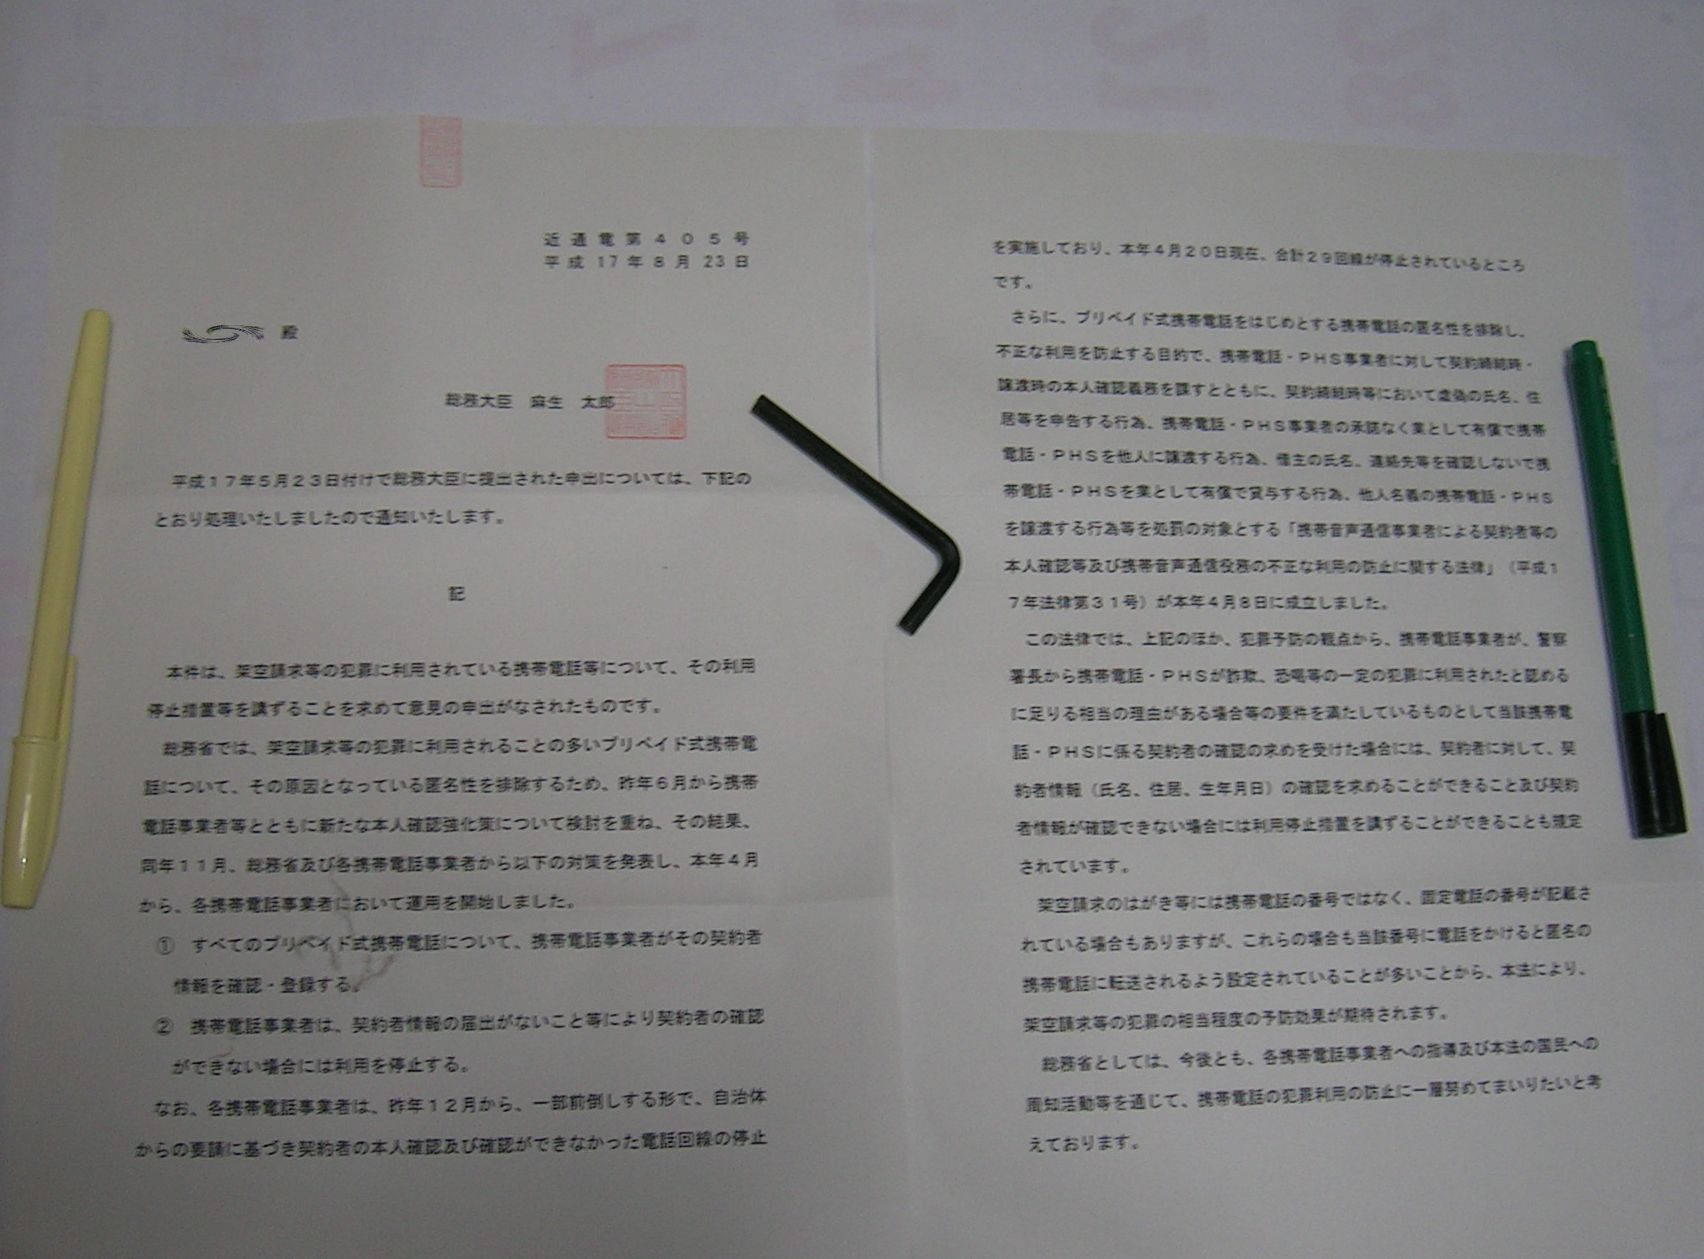 近通電第405号
平成17年8月23日
殿
総務大臣 麻生 太郎
平成17年5月23日付けで総務大臣に提出された申出については、下記の
とおり処理いたしましたので通知いたします。
記
本件は、架空請求等の犯罪に利用されている携帯電話等について、その利用
停止措置等を講ずることを求めて意見の申出がなされたものです。
総務省では、架空請求等の犯罪に利用されることの多いプリペイド式携帯電
話について、その原因となっている匿名性を排除するため、昨年6月から携帯
電話事業者等とともに新たな本人確認強化策について検討を重ね、その結果、
同年11月、総務省及び各携帯電話事業者から以下の対策を発表し、本年4月
から、各携帯電話事業者において運用を開始しました。
① すべてのプリペイド式携帯電話について、携帯電話事業者がその契約者
情報を確認・登録する。
② 携帯電話事業者は、契約者情報の届出がないこと等により契約者の確認
ができない場合には利用を停止する。
なお、各携帯電話事業者は、昨年12月から、一部前倒しする形で、自治体
からの要請に基づき契約者の本人確認及び確認ができなかった電話回線の停止
を実施しており、本年4月20日現在、合計29回線が停止されているところ
です。
さらに、プリペイド式携帯電話をはじめとする携帯電話の匿名性を排除し、
不正な利用を防止する目的で、携帯電話・PHS事業者に対して契約締結時・
譲渡時の本人確認義務を課すとともに、契約締結時等において虚偽の氏名、住
居等を申告する行為、携帯電話・PHS事業者の承諾なく業として有償で携帯
電話・PHSを他人に譲渡する行為、借主の氏名、連絡先等を確認しないで携
帯電話・PHSを業として有償で貸与する行為、他人名義の携帯電話・PHS
を譲渡する行為等を処罰の対象とする「携帯音声通信事業者による契約者等の
本人確認等及び携帯音声通信役務の不正な利用の防止に関する法律」（平成1
7年法律第31号）が本年4月8日に成立しました。
この法律では、上記のほか、犯罪予防の観点から、携帯電話事業者が、警察
署長から携帯電話・PHSが詐欺、恐喝等の一定の犯罪に利用されたと認める
に足りる相当の理由がある場合等の要件を満たしているものとして当該携帯電
話・PHSに係る契約者の確認の求めを受けた場合には、契約者に対して、契
約者情報（氏名、住居、生年月日）の確認を求めることができること及び契約
者情報が確認できない場合には利用停止措置を講ずることができることも規定
されています。
架空請求のはがき等には携帯電話の番号ではなく、固定電話の番号が記載さ
れている場合もありますが、これらの場合も当該番号に電話をかけると匿名の
携帯電話に転送されるよう設定されていることが多いことから、本法により、
架空請求等の犯罪の相当程度の予防効果が期待されます。
総務省としては、今後とも、各携帯電話事業者への指導及び本法の国民への
周知活動等を通じて、携帯電話の犯罪利用の防止に一層努めてまいりたいと考
えております。